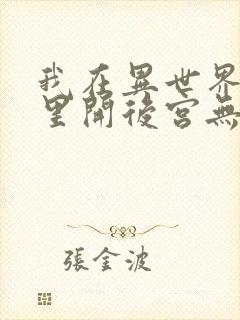 我在異世界
里開後宮無
張金波